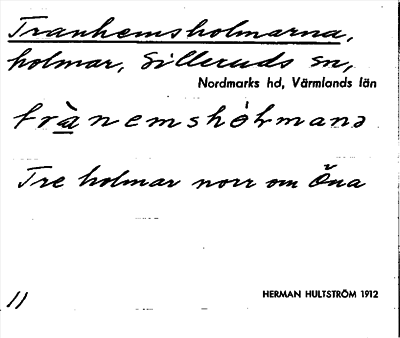 Tranhemsholmarna,
holmar, Silleruds sn,
Nordmarks hd, Värmlands län
Tre holmar norr om Öna
11
HERMAN HULTSTRÖM 1912